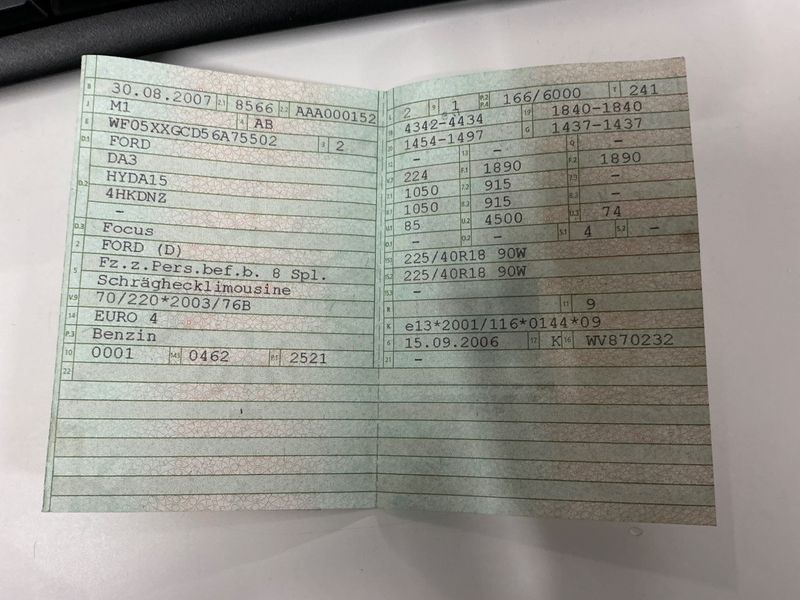 B 30.08.2007 2.1 8566 2.2 AAA000152
J M1 4 AB
E WF05XXGCD56A75502 3 2
D.1 FORD
DA3
D.2 HYDA15
4HKDNZ
-
D.3 Focus
2 FORD (D)
5 Fz.z.Pers.bef.b. 8 Spl.
Schräghecklimousine
V.9 70/220*2003/76B
14 EURO 4
P.3 Benzin
10 0001 14.1 0462 P.1 2521
22
L 2 9 1 P.2 P.4 166/6000 T 241
18 4342-4434 19 1840-1840
20 1454-1497 G 1437-1437
- 13 - Q -
V.7 224 F.1 1890 F.2 1890
7.1 1050 7.2 915 7.3 -
8.1 1050 8.2 915 8.3 -
U.1 85 U.2 4500 U.3 74
O.1 - O.2 - S.1 4 S.2 -
15.1 225/40R18 90W
15.2 225/40R18 90W
15.3 -
R 11 9
K e13*2001/116*0144*09
6 15.09.2006 17 K 16 WV870232
21 -